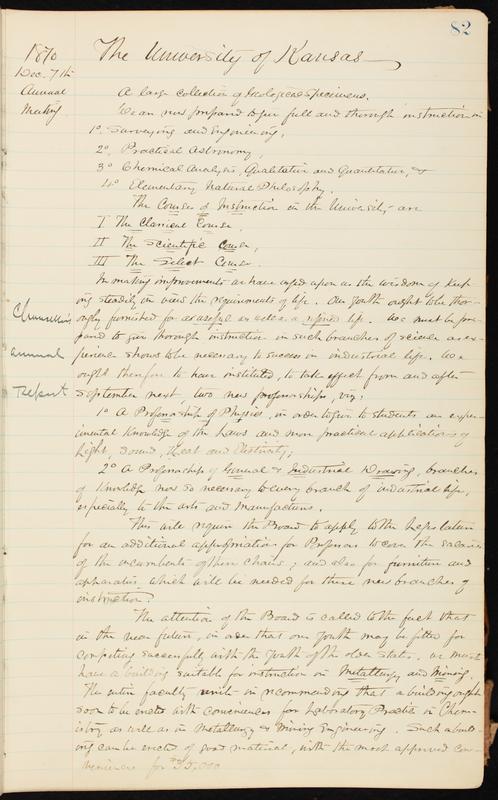 82
1870 The University of Kansas
Dec. 7th
Annual A large collection of Geological Specimens.
Meeting We are now prepared to give full and thorough instruction in
1o Surveying and Engineering,
2o, Practical Astronomy,
3o Chemical Analysis, Qualitative and Quantitative, &
4o Elementary Natural Philosophy.
The Courses of Instruction in the University are
I The Classical Course,
II The Scientific Course,
III The Select Course.
In making improvements we have urged upon us the wisdom of keep
ing steadily in view the requirements of life. Our youth ought to be thor-
Chancellor's oughly furnished for as useful as well as a refined life. We must be pre-
pared to give thorough instruction in such branches of science as ex-
annual perience shows to be necessary to success in industrial life. We
ought therefore to have instituted, to take effect from and after
Report September next, two new professorships, viz:
1o A Professorship of Physics, in order to give to students an exper-
imental knowledge of the Laws and more practical applications of
Light, Sound, Heat and Electricity;
2o A Professorship of General & Industrial Drawing, branches
of knowledge now so necessary to every branch of industrial life,
especially to the arts and manufactures.
This will require the Board to apply to the Legislature
for an additional appropriation for Professors to cover the salaries
of the incumbents of these chairs; and also for furniture and
apparatus which will be needed for these new branches of
instruction.
The attention of the Board is called to the fact that
in the near future, in order that our youth may be fitted for
competing successfully with the youth of the older States, we must
have a building suitable for instruction in Metallurgy and Mining.
The entire faculty unite in recommending that a building ought
soon to be erected with conveniences for Laboratory Practice in Chem-
istry as well as in Metallurgy & Mining Engineering. Such a build-
ing can be erected of good material, with the most approved con-
veniences for $35,000